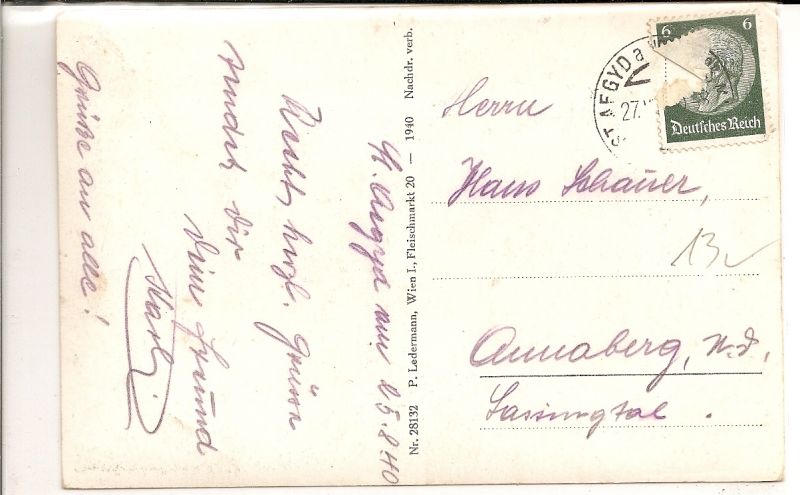 St. Aegyd am 25.8.40
Recht herzl. Grüsse
sendet dir
dein Freund
Karli
Grüße an alle!
Nr. 28132 P. Ledermann, Wien I., Fleischmarkt 20 — 1940 Nachdr. verb.
ST. AEGYD a
27.
6 6
Deutsches Reich
Herrn
Hans Schauer,
13
Annaberg, N.d.
Lassingtal.